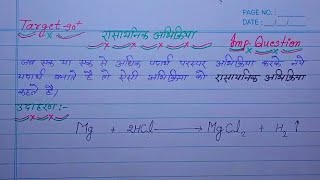 PAGE NO.:
DATE: / /
Target-90+
रासायनिक अभिक्रिया
Imp. Question
जब एक या एक से अधिक पदार्थ परस्पर अभिक्रिया करके नये
पदार्थ बनाते हैं तो ऐसी अभिक्रिया को रासायनिक अभिक्रिया
कहते हैं।
उदाहरण:-
Mg + 2HCl → MgCl₂ + H₂ ↑